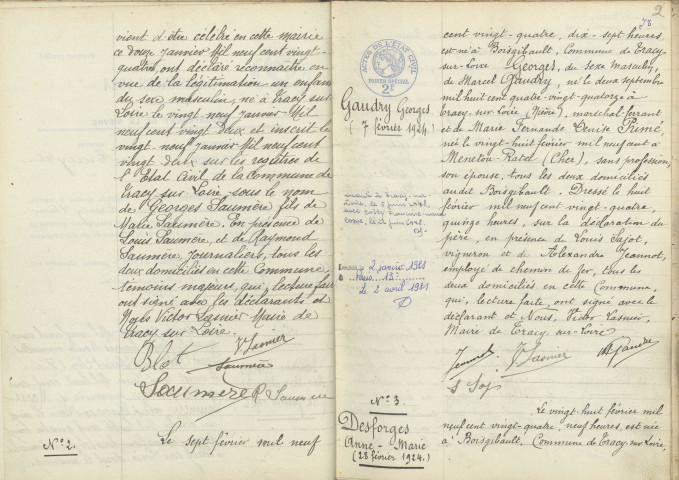 vient d'être célébré en cette mairie
ce douze janvier Mil neuf cent vingt-
quatre, ont déclaré reconnaître en
vue de la légitimation un enfant
du sexe masculin, né à Tracy sur
Loire le vingt neuf janvier Mil
neuf cent vingt deux et inscrit le
vingt neuf janvier Mil neuf cent
vingt deux sur les registres de
l'Etat Civil de la Commune de
Tracy sur Loire, sous le nom
de Georges Saumère fils de
Marie Saumère. En présence de
Louis Saumère, et de Raymond
Saumère journaliers, tous les
deux domiciliés en cette Commune
témoins majeurs, qui, lecture faite
ont signé avec les déclarants et
Nous Victor Lasnier Maire de
Tracy sur Loire.
Blot VLasnier
Saumère
Saumère R Saumère
N° 2.
Le sept février mil neuf
2
78
ACTES DE L'ETAT CIVIL
PAPIER SPECIAL
2F
Gaudry Georges
(7 février 1924.)
2 janvier 1981
13
le 2 avril 1981
cent vingt-quatre, dix-sept heures
est né à Boisgibault, Commune de Tracy-
sur-Loire Georges, du sexe masculin,
de Marcel Gaudry, né le deux septembre
mil huit cent quatre-vingt-quatorze à
Tracy-sur-Loire (Nièvre), maréchal ferrant
et de Marie Fernande Denise Primé,
née le vingt-huit février mil neuf cent à
Menetou-Ratel (Cher), sans profession,
son épouse, tous les deux domiciliés
audit Boisgibault. Dressé le huit
février mil neuf cent vingt-quatre,
quinze heures, sur la déclaration du
père, en présence de Louis Sajot,
vigneron et de Alexandre Jeannot,
employé de chemin de fer, tous les
deux domiciliés en cette Commune,
qui, lecture faite, ont signé avec le
déclarant et Nous, Victor Lasnier,
Maire de Tracy-sur-Loire
Jeannot VLasnier MGaudry
N° 3
Desforges
Anne-Marie
(28 février 1924.)
Le vingt-huit février mil
neuf cent vingt-quatre, neuf heures, est née
à Boisgibault, Commune de Tracy-sur-Loire,